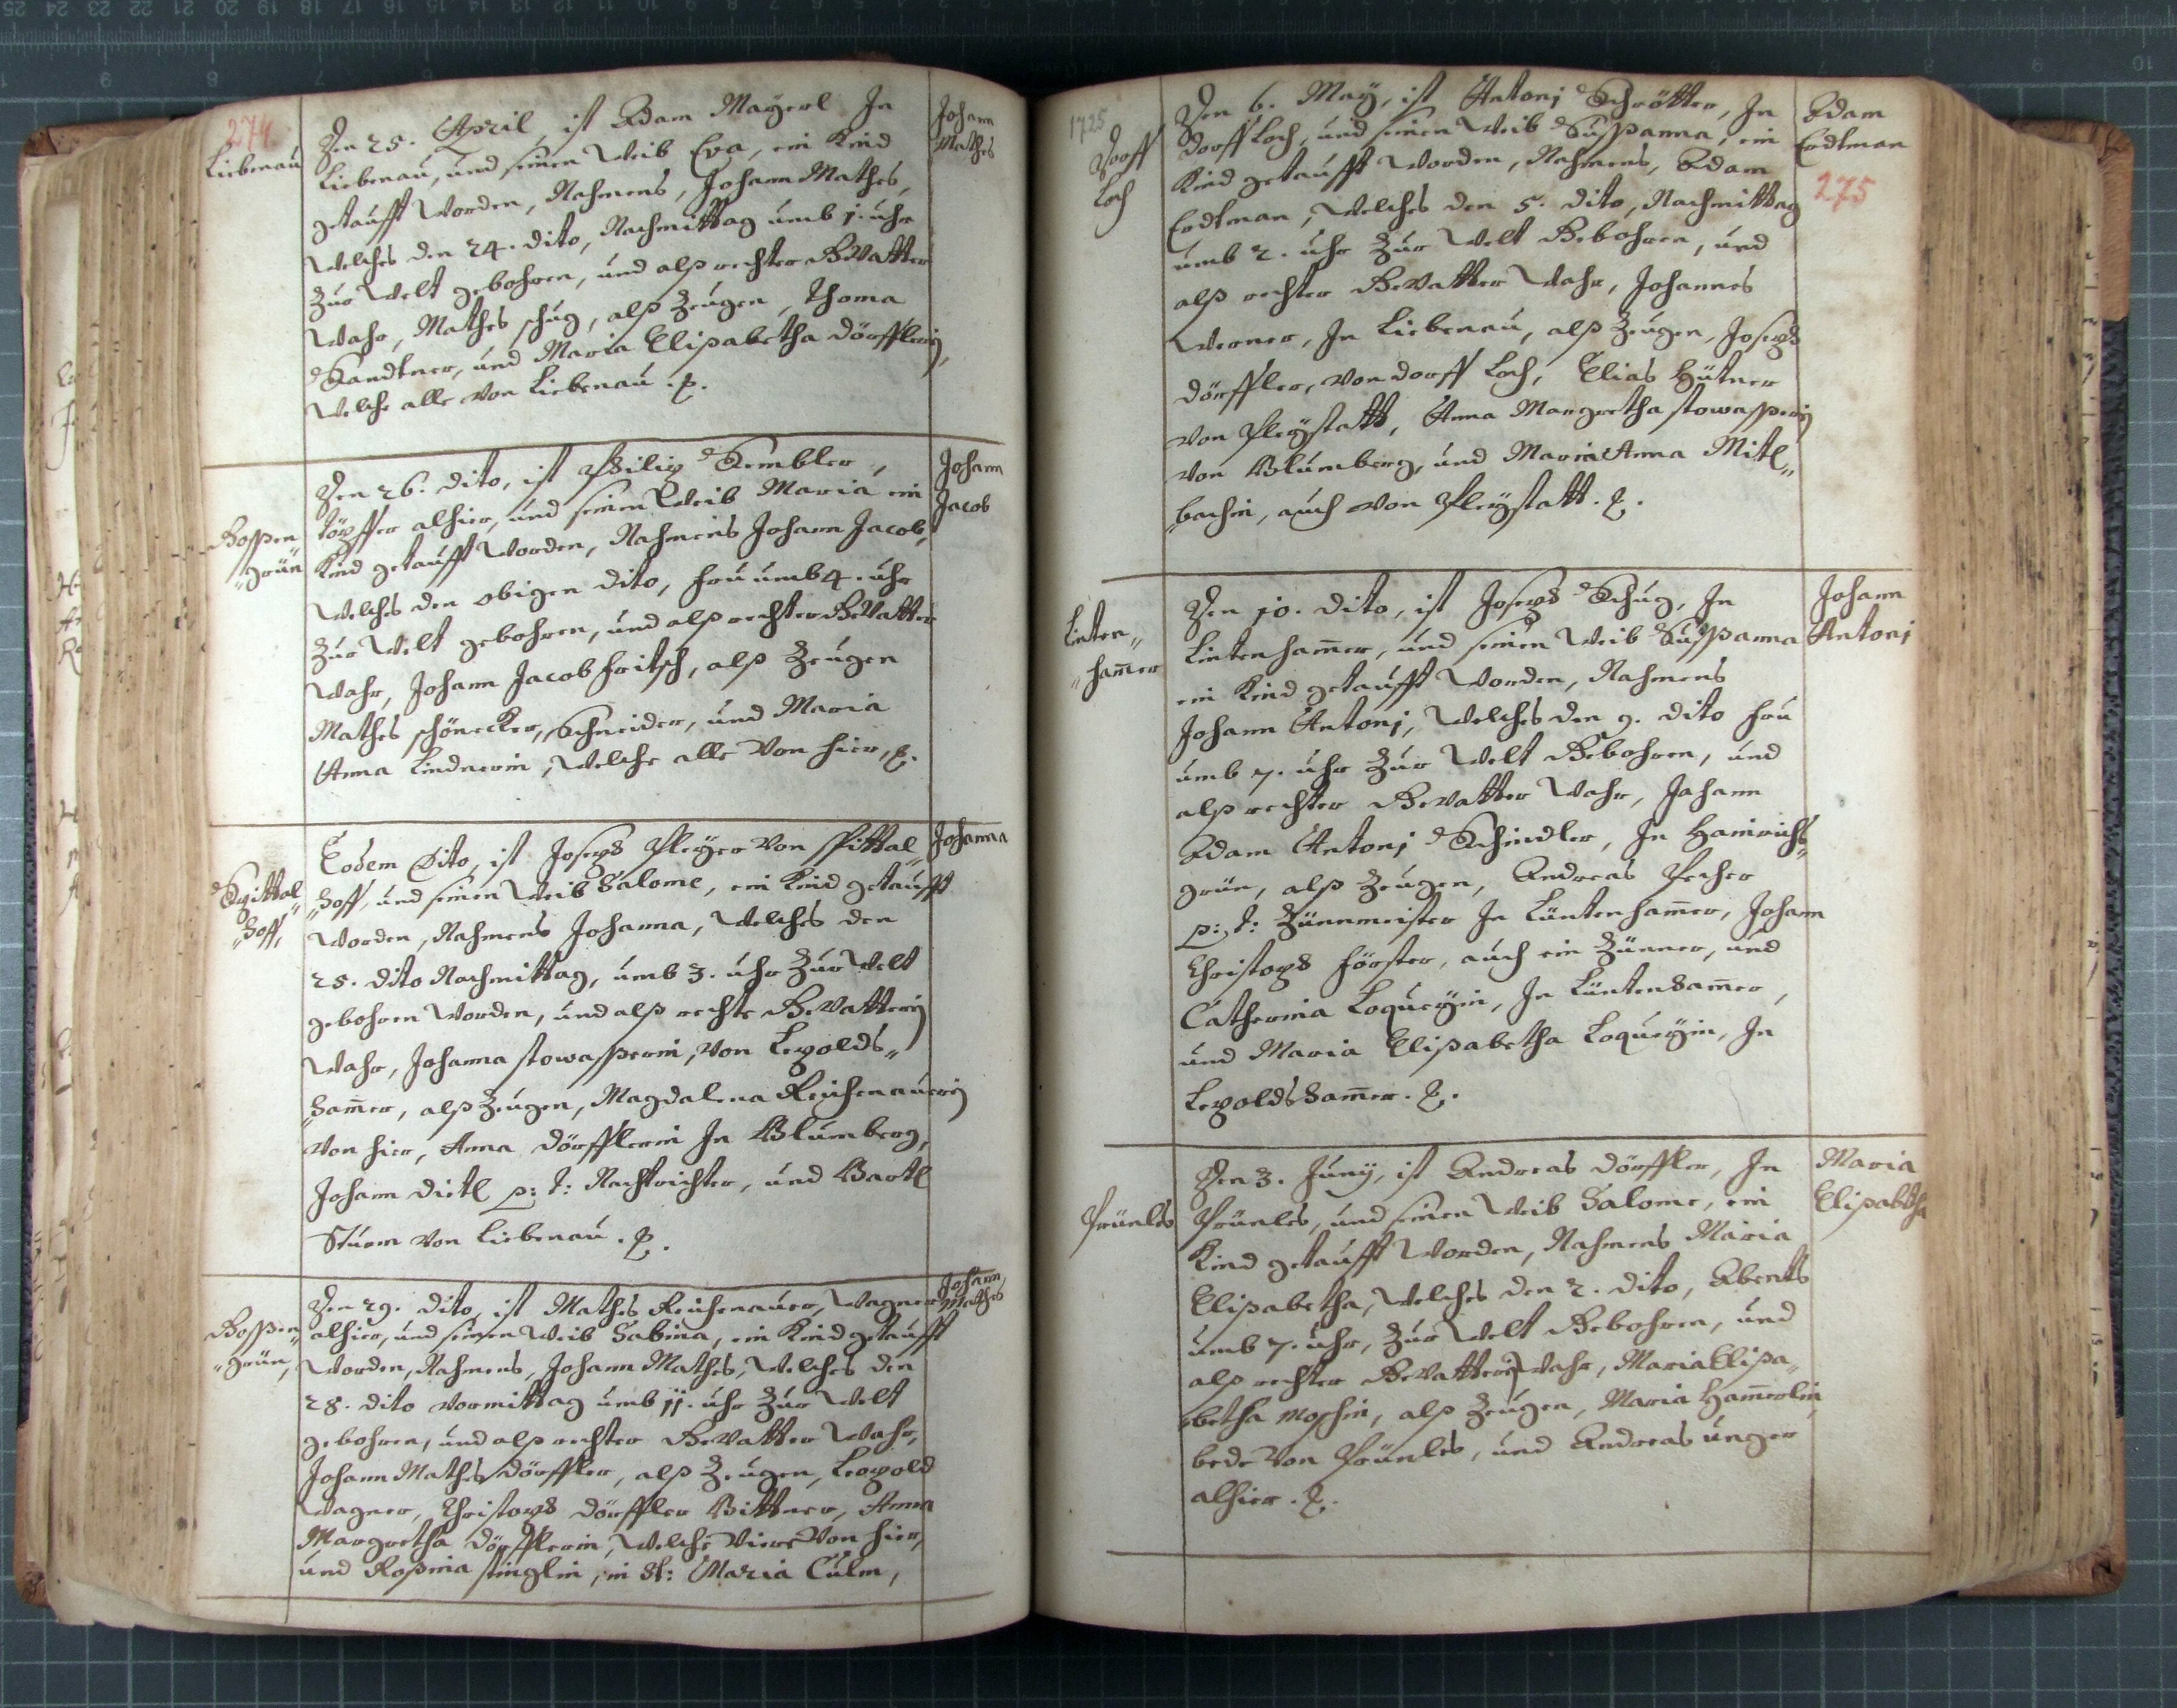 274.
Liebenau
Den 25. April, ist Adam Mayerl In
Liebenau, und seinen Weib Eva, ein Kind
getaufft worden, Nahmens, Johann Mathes,
welches den 24. dito, Nachmittag umb 1. uhr
zur Welt gebohren, und alß rechter Gevatter
wahr, Mathes schug, alß Zeugen, Thoma
Sandtner, und Maria Elisabetha dörfflerin,
welche alle von Liebenau. p.
Johann
Mathes
Gossen„
„grün
Den 26. dito, ist Philip Sembler,
töpffer alhier, und seinen Weib Maria ein
Kind getaufft worden, Nahmens Johann Jacob,
welches den obigen dito, fru umb 4. uhr
zur Welt gebohren, und alß rechter Gevatter
wahr, Johann Jacob fritsch, alß Zeugen
Mathes schönecker, Schneider, und Maria
Anna Lindnerin, welche alle von hier, p.
Johann
Jacob
Spittal„
„hoff,
Eodem Dito, ist Joseph Pleyer von Spittal„
„hoff, und seinen Weib Salome, ein Kind getaufft
worden, Nahmens Johanna, welches den
25. dito Nachmittag, umb 3. uhr zur Welt
gebohren worden, und alß rechte Gevatterin
wahr, Johanna stowasserin, von Lepolds„
„ham̄er, alß Zeugen, Magdalena Reichenauerin
von hier, Anna dörfflerin In Blumberg,
Johann Dietl p: t: Nachtrichter, und Bartl
Sturm von Liebenau. p.
Johanna
Gossen„
„grün,
Den 29. dito, ist Mathes Reichenauer, Wagner
alhier, und seinen Weib Sabina, ein Kind getaufft
worden, Nahmens, Johann Mathes, welches den
28. dito vormittag umb 11. uhr zur Welt
gebohren, und alß rechter Gevatter wahr,
Johann Mathes dörffler, alß Zeugen, Leopold
Wagner, Christoph dörffler Bittner, Anna
Margretha dörfflerin, welche Viere von hier,
und Rosina stinglin, in St: Maria Culm,
Johann
Mathes
1725
Dorff
Loch
Den 6. May, ist Antonj Schrötter, In
dorff Loch, und seinen Weib Sussanna, ein
Kind getaufft worden, Nahmens, Adam
Erdtman, welches den 5. dito, Nachmittag
umb 2. uhr zur Welt Gebohren, und
alß rechter Gevatter wahr, Johannes
Werner, In Liebenau, alß Zeugen, Joseph
dörffler, von dorff Loch, Elias Hütner
von Pleystatt, Anna Margretha stowasserin
von Blumberg, und Maria Anna Mitl„
„bachin, auch von Pleystatt. p.
Adam
Erdtman
275
Linten„
„ham̄er
Den 10. dito, ist Joseph Schug, In
Lintenham̄er, und seinen Weib Sussanna
ein Kind getaufft worden, Nahmens
Johann Antonj, welches den 9. dito fru
umb 7. uhr zur Welt Gebohren, und
alß rechter Gevatter wahr, Johann
Adam Antonj Schindler, In Hainrichs„
grün, alß Zeugen, Andreas Pecher
p: t: Zünnmeister In Lüntenham̄er, Johann
Christoph Förster, auch ein Zünner, und
Catherina Loqueyin, In Lüntenham̄er,
und Maria Elisabetha Loqueyin, In
Lepoldsham̄er. p.
Johann
Antonj
Prünles
Den 3. Juny, ist Andreas dörffler, In
Prünles, und seinen Weib Salome, ein
Kind getaufft worden, Nahmens Maria
Elisabetha, welches den 2. dito, Abents
umb 7. uhr, zur Welt Gebohren, und
alß rechter Gevatterin wahr, Maria Elisa„
„betha Moschin, alß Zeugen, Maria Ham̄erlin,
bede von Prünles, und Andreas unger
alhier. p.
Maria
Elisabtha